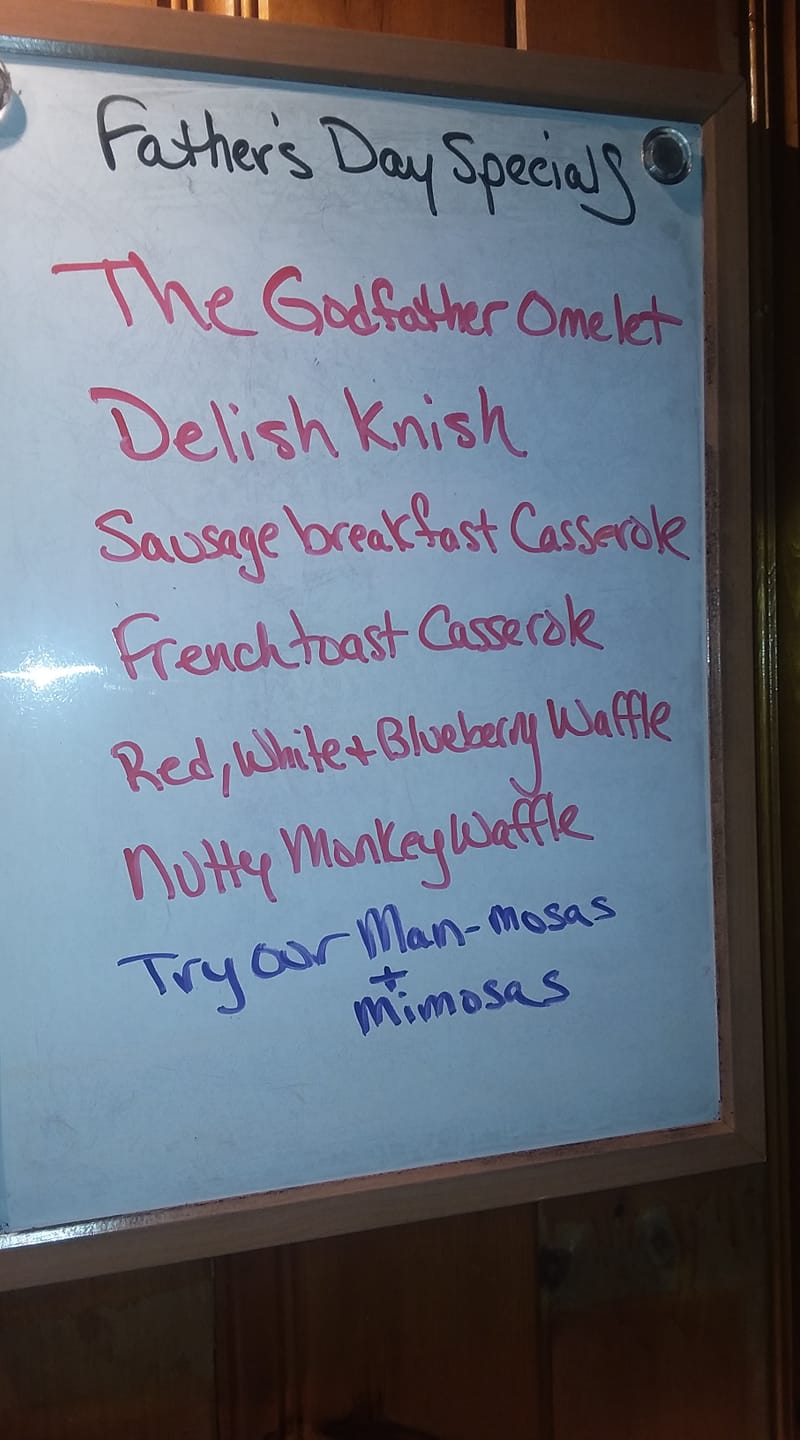 Father's Day Specials
The Godfather Omelet
Delish Knish
Sausage breakfast Casserole
French toast Casserole
Red, White + Blueberry Waffle
Nutty Monkey Waffle
Try our Man-mosas
+
mimosas